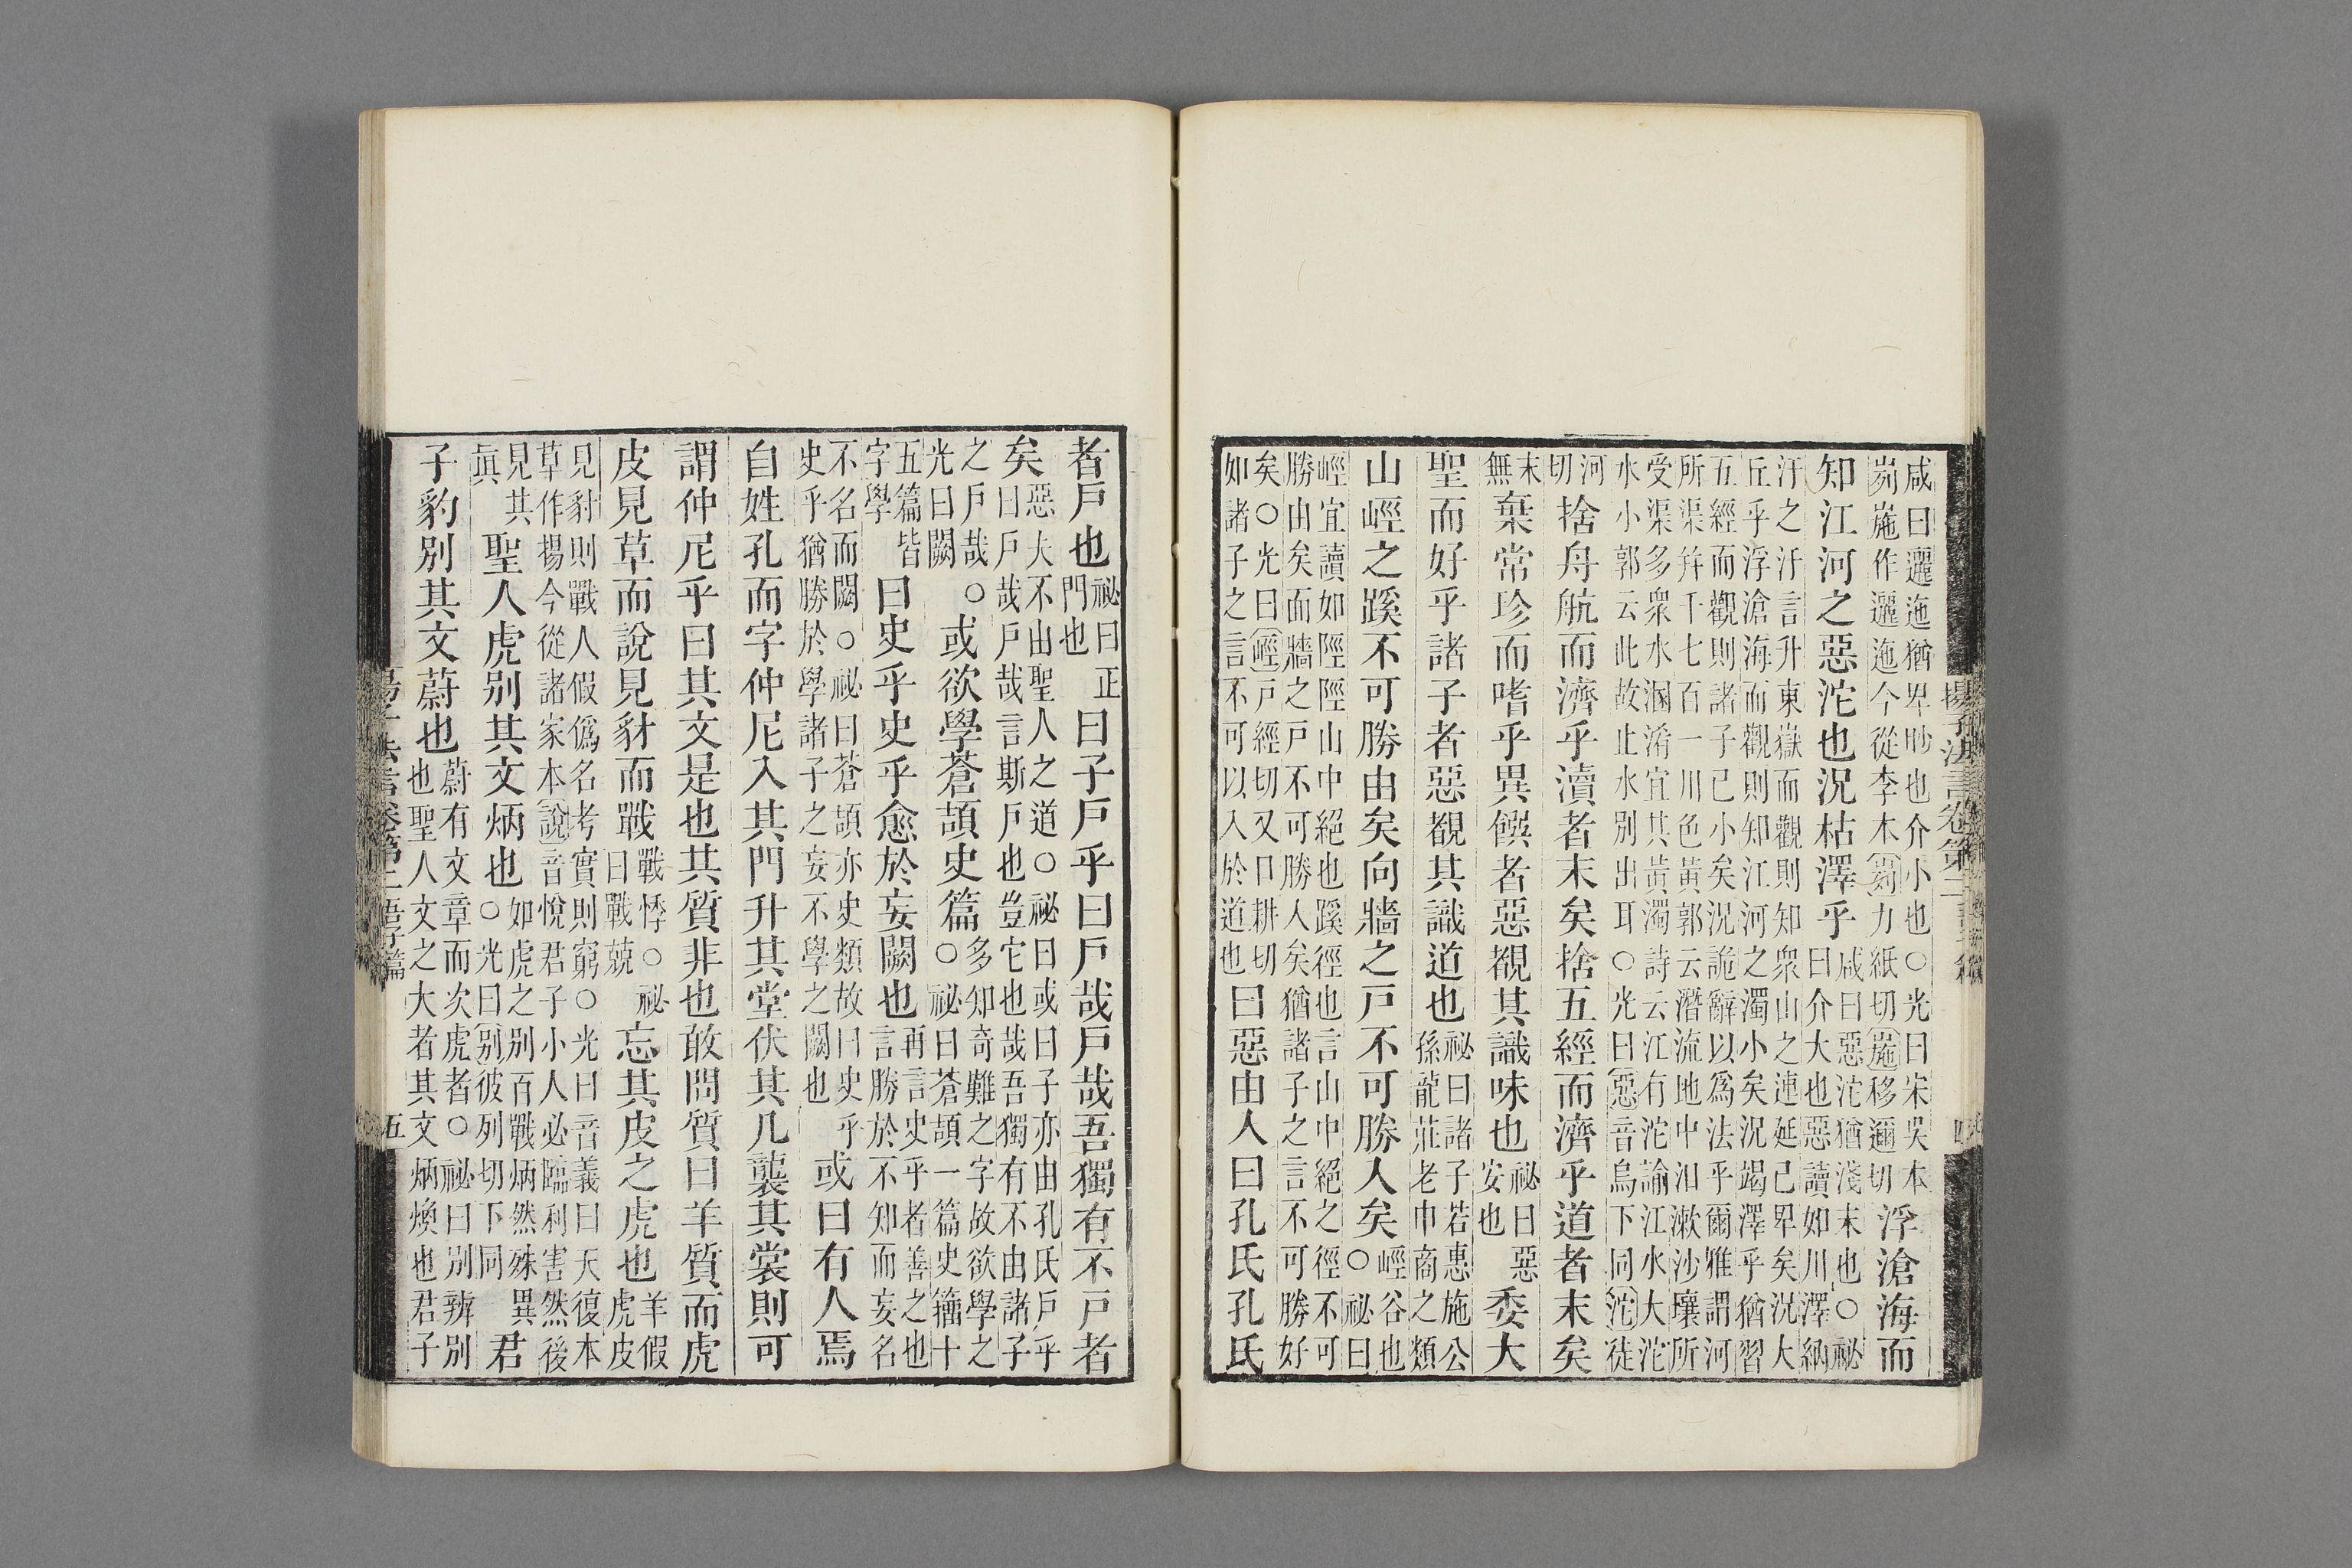 咸曰邐迤猶卑眇也介小也○光曰宋吳本
峛崺作邐迤今從李本峛力紙切崺移邇切
浮滄海而
知江河之惡沱也況枯澤乎
咸曰惡沱猶淺末也○祕
曰介大也惡讀如川澤納
汙之汙言升東嶽而觀則知衆山之連延已卑矣況大
丘乎浮滄海而觀則知江河之濁小矣況竭澤乎猶習
五經而觀則諸子已小矣況詭辭以爲法乎爾雅謂河
所渠幷千七百一川色黃郭云潛流地中汩漱沙壤所
受渠多衆水溷淆宜其黃濁詩云江有沱諭江水大沱
水小郭云此故止水別出耳○光曰惡音烏下同沱徒
河
切
捨舟航而濟乎瀆者末矣捨五經而濟乎道者末矣
末
無
棄常珍而嗜乎異饌者惡覩其識味也
祕曰惡
安也
委大
聖而好乎諸子者惡覩其識道也
祕曰諸子若惠施公
孫龍莊老巾商之類
山𡷨之蹊不可勝由矣向牆之戶不可勝入矣
𡷨谷也
○祕曰
𡷨宜讀如陘陘山中絕也蹊徑也言山中絕之徑不可
勝由矣而牆之戶不可勝入矣猶諸子之言不可勝好
矣○光曰𡷨戶經切又口耕切
如諸子之言不可以入於道也
曰惡由入曰孔氏孔氏
揚子法言卷第二
者戶也
祕曰正
門也
曰子戶乎曰戶哉戶哉吾獨有不戶者
矣
惡夫不由聖人之道○祕曰或曰子亦由孔氏戶乎
曰戶哉戶哉言斯戶也豈它也哉吾獨有不由諸子
之戶哉○
光曰闕
或欲學蒼頡史篇
多知奇難之字故欲學之
○祕曰蒼頡一篇史籀十
五篇皆
字學
曰史乎史乎愈於妄闕也
再言史乎者善之也
言勝於不知而妄名
不名而闕○祕曰蒼頡亦史類故曰史乎
史乎猶勝於學諸子之妄不學之闕也
或曰有人焉
自姓孔而字仲尼入其門升其堂伏其几襲其裳則可
謂仲尼乎曰其文是也其質非也敢問質曰羊質而虎
皮見草而說見豺而戰
戰悸○祕
曰戰兢
忘其皮之虎也
羊假
虎皮
見豺則戰人假僞名考實則窮○光曰音義曰天復本
草作揚今從諸家本說音悅君子小人必臨利害然後
見其
眞
聖人虎別其文炳也
如虎之別百戰炳然殊異
○光曰別彼列切下同
君
子豹別其文蔚也
蔚有文章而次虎者○祕曰別辨別
也聖人文之大者其文炳煥也君子
五